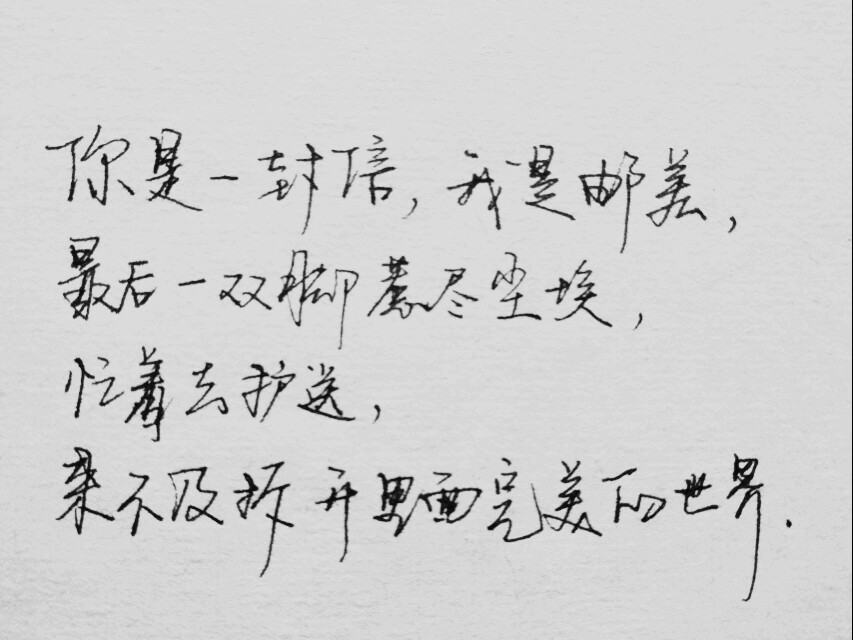 你是一封信，我是邮差，
最后一双脚惹尽尘埃，
忙着去护送，
来不及拆开里面完美的世界.